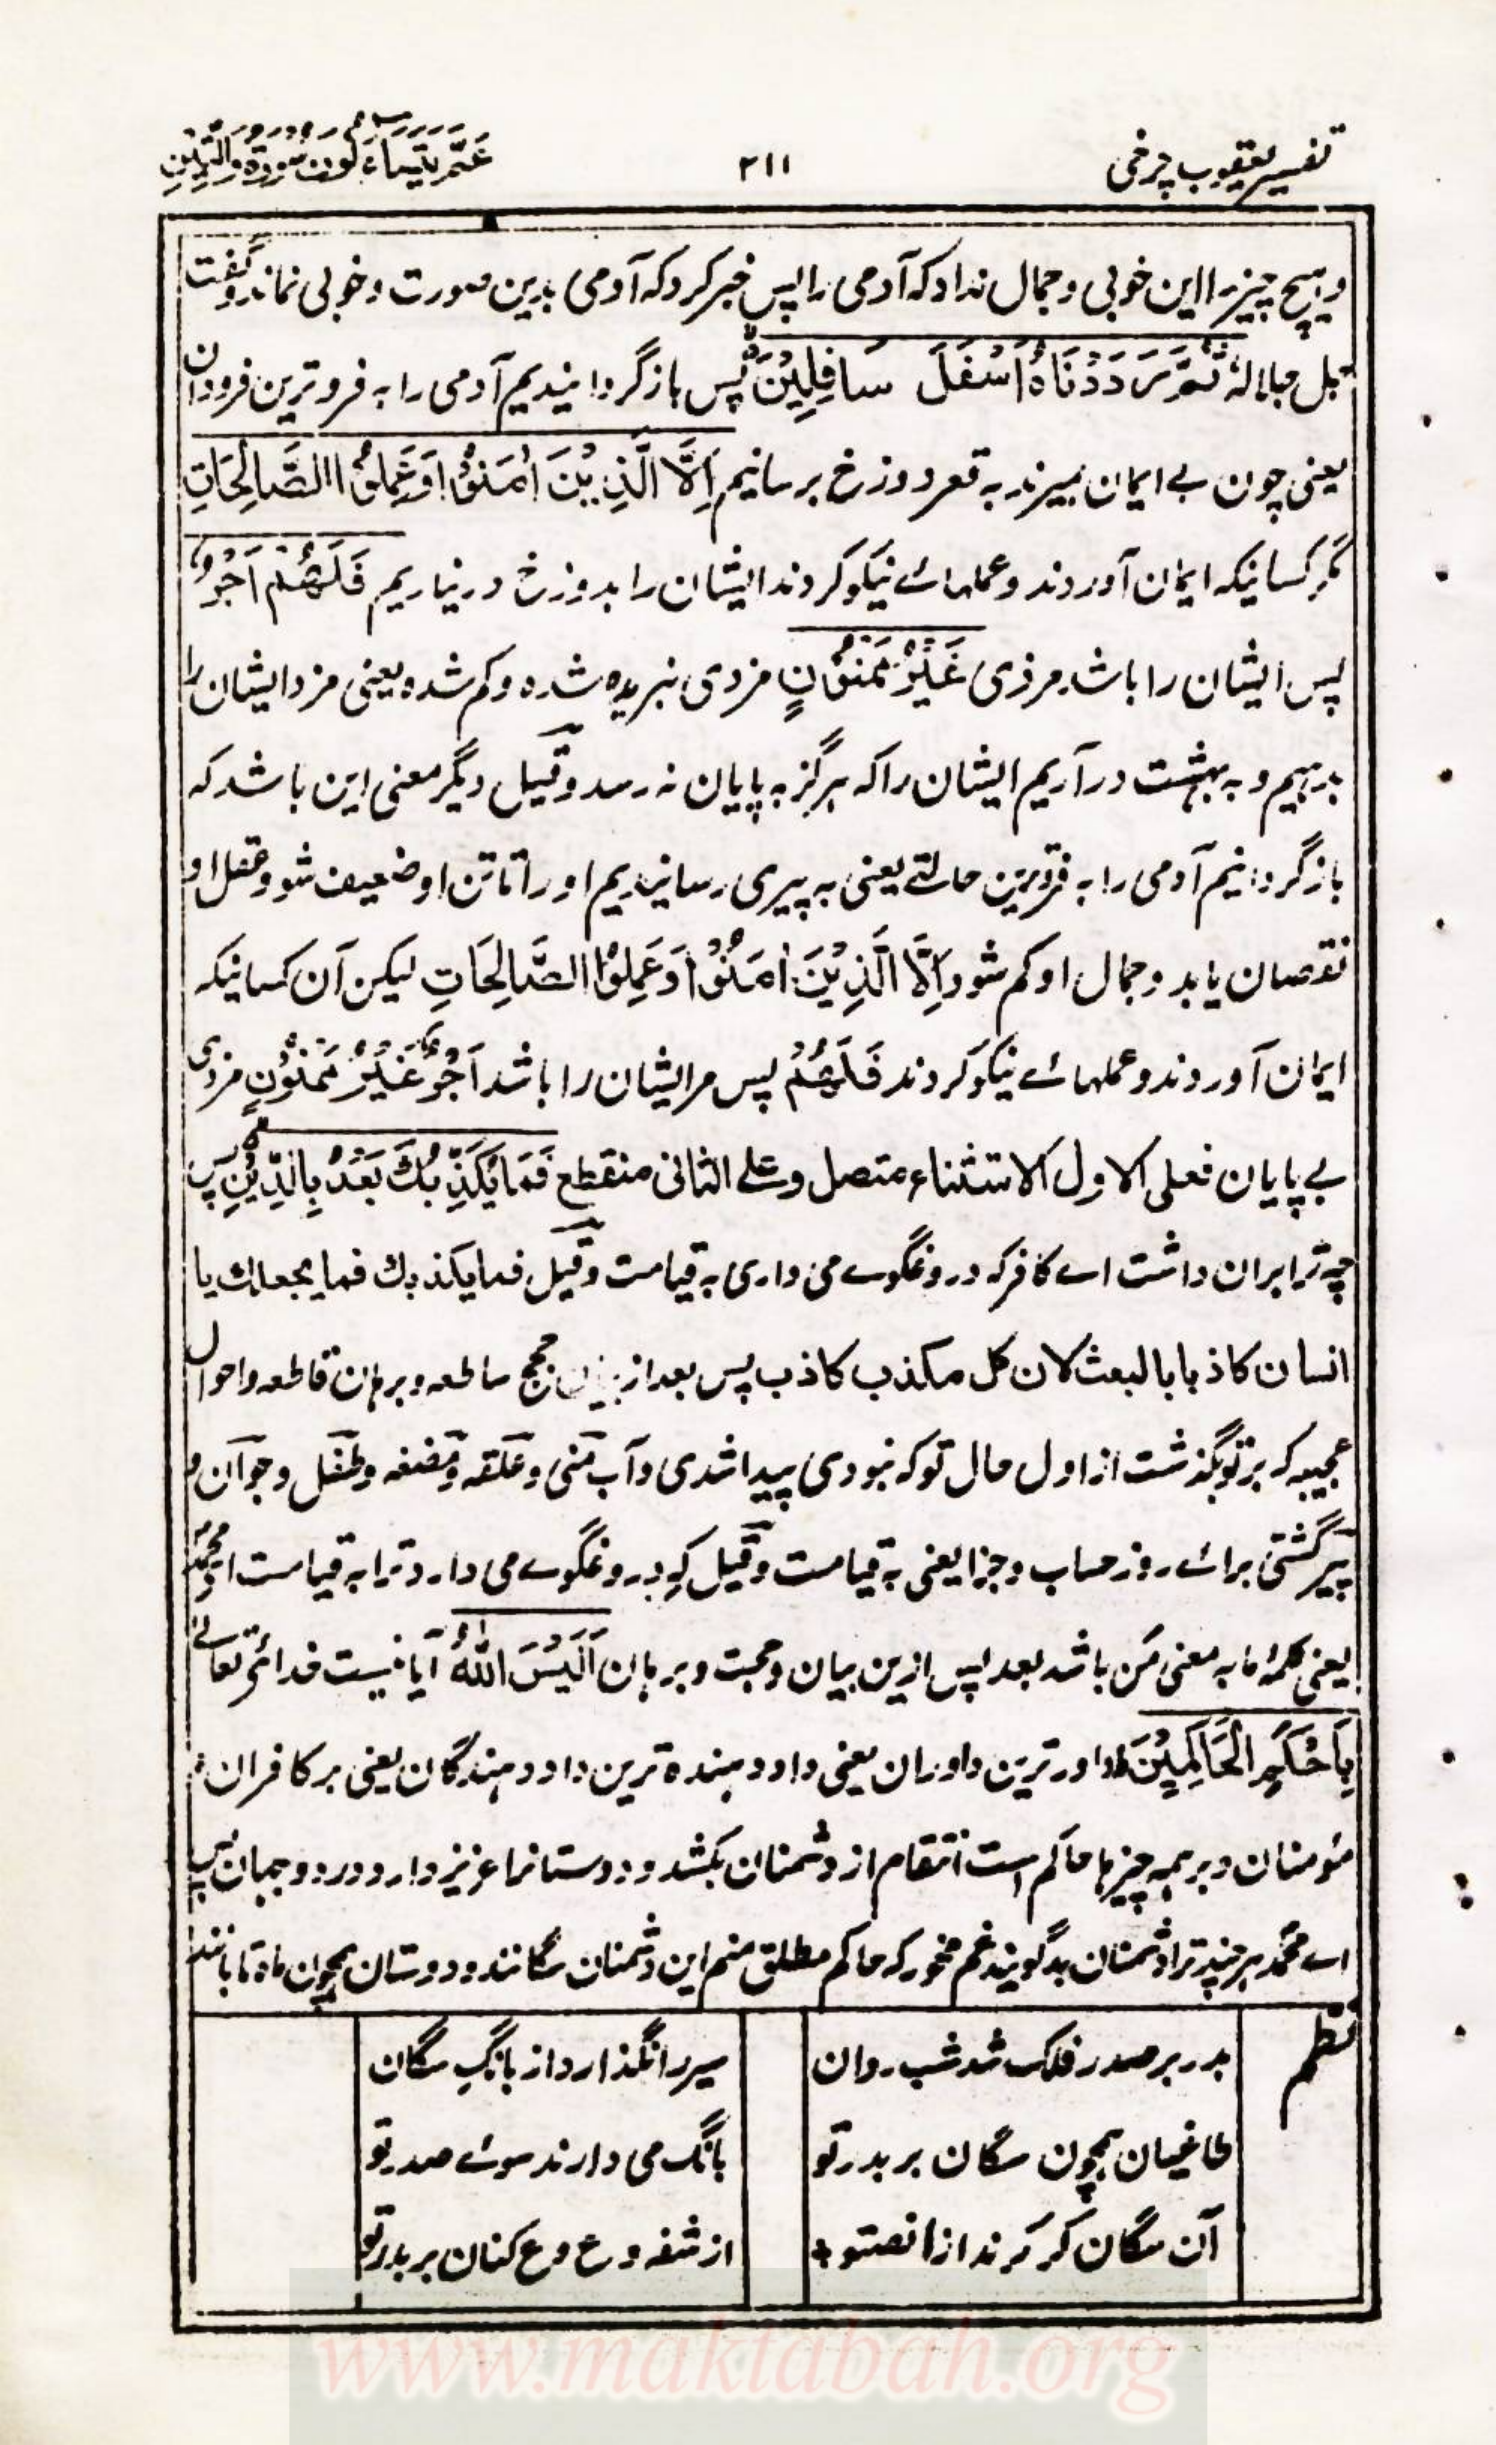 تفسیر یعقوب چرخی
۲۱۱
عَمَّ يَتَسَاءَلُونَ سُورَةُ وَالتِّيْنِ
و ہیچ چیز را این خوبی و جمال نداد کہ آدمی را پس خبر کرد کہ آدمی بدین صورت و خوبی نماند و گفت
جل جلالہ ثُمَّ رَدَدْنَاهُ اَسْفَلَ سَافِلِيْنَ پس باز گردانیدیم آدمی را بہ فروترین فرودان
یعنی چون بے ایمان بمیرند بہ قعر دوزخ برسانیم اِلَّا الَّذِيْنَ اٰمَنُوْا وَعَمِلُوا الصَّالِحَاتِ
مگر کسانیکہ ایمان آوردند و عملہائے نیکو کردند ایشان را بدوزخ در نیاریم فَلَهُمْ اَجْرٌ
پس ایشان را باشد مزدی غَيْرُ مَمْنُوْنٍ مزدی نبریدہ شدہ و کم شدہ یعنی مزد ایشان را
بدہیم و بہ بہشت در آریم ایشان را کہ ہرگز بہ پایان نہ رسد و قیل دیگر معنی این باشد کہ
باز گردانیم آدمی را بہ فروترین حالتے یعنی بہ پیری رسانیدیم او را تا تن او ضعیف شود و عقل او
نقصان یابد و جمال او کم شود اِلَّا الَّذِيْنَ اٰمَنُوْا وَعَمِلُوا الصَّالِحَاتِ لیکن آن کسانیکہ
ایمان آوردند و عملہائے نیکو کردند فَلَهُمْ پس مر ایشان را باشد اَجْرٌ غَيْرُ مَمْنُوْنٍ مزدی
بے پایان فعلی الاول الاستثناء متصل و علے الثانی منقطع فَمَا يُكَذِّبُكَ بَعْدُ بِالدِّيْنِ پس
چہ ترا بران داشت اے کافر کہ دروغگوے می داری بہ قیامت و قیل فما یکذبك فما یجعلك یا
انسان کاذبا بالبعث لان کل مکذب کاذب پس بعد از حجج ساطعہ و برہان قاطعہ و احوال
عجیبہ کہ بر تو بگذشت از اول حال تو کہ نبودی پیدا شدی و آب منی و علقہ و مضغہ و طفل و جوان و
پیر گشتی برائے روز حساب و جزا یعنی بہ قیامت و قیل کہ دروغگوے می دارد ترا بہ قیامت اے محمد
یعنی کلمۂ ما بہ معنی من باشد بعد پس ازین بیان و حجت و برہان اَلَيْسَ اللّٰهُ آیا نیست خدائے تعالےٰ
بِاَحْكَمِ الْحَاكِمِيْنَ داور ترین داوران یعنی داد دہندہ ترین داد دہندگان یعنی بر کافران و
مؤمنان و بر ہمہ چیزہا حاکم است انتقام از دشمنان بکشد و دوستانرا عزیز دارد در دو جہان پس
اے محمد ہر چند ترا دشمنان بد گویند غم مخور کہ حاکم مطلق منم این دشمنان سگانند و دوستان ہمچون ماہ تابانند
نظم
بدر بر صدر فلک شد شب روان
سیر را نگذارد از بانگ سگان
طاغیان ہمچون سگان بر بدر تو
بانگ می دارند سوئے صدر تو
آن سگان کر کرند از انصتوا
از شفہ و ع و ع کنان بر بدر تو
www.maktabah.org